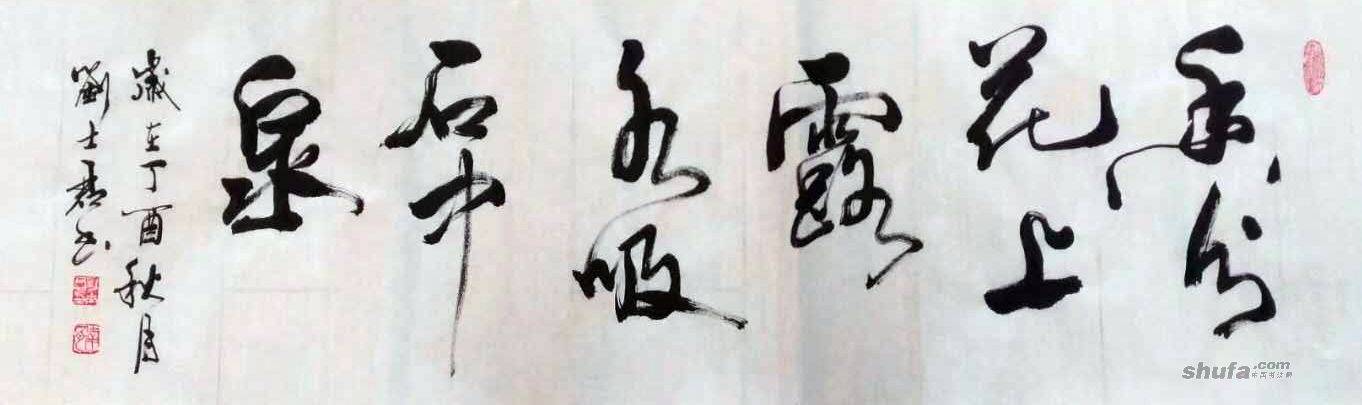 香分
花上
露
水吸
石中
泉
歲在丁酉秋月
劉士君书
shufa.com